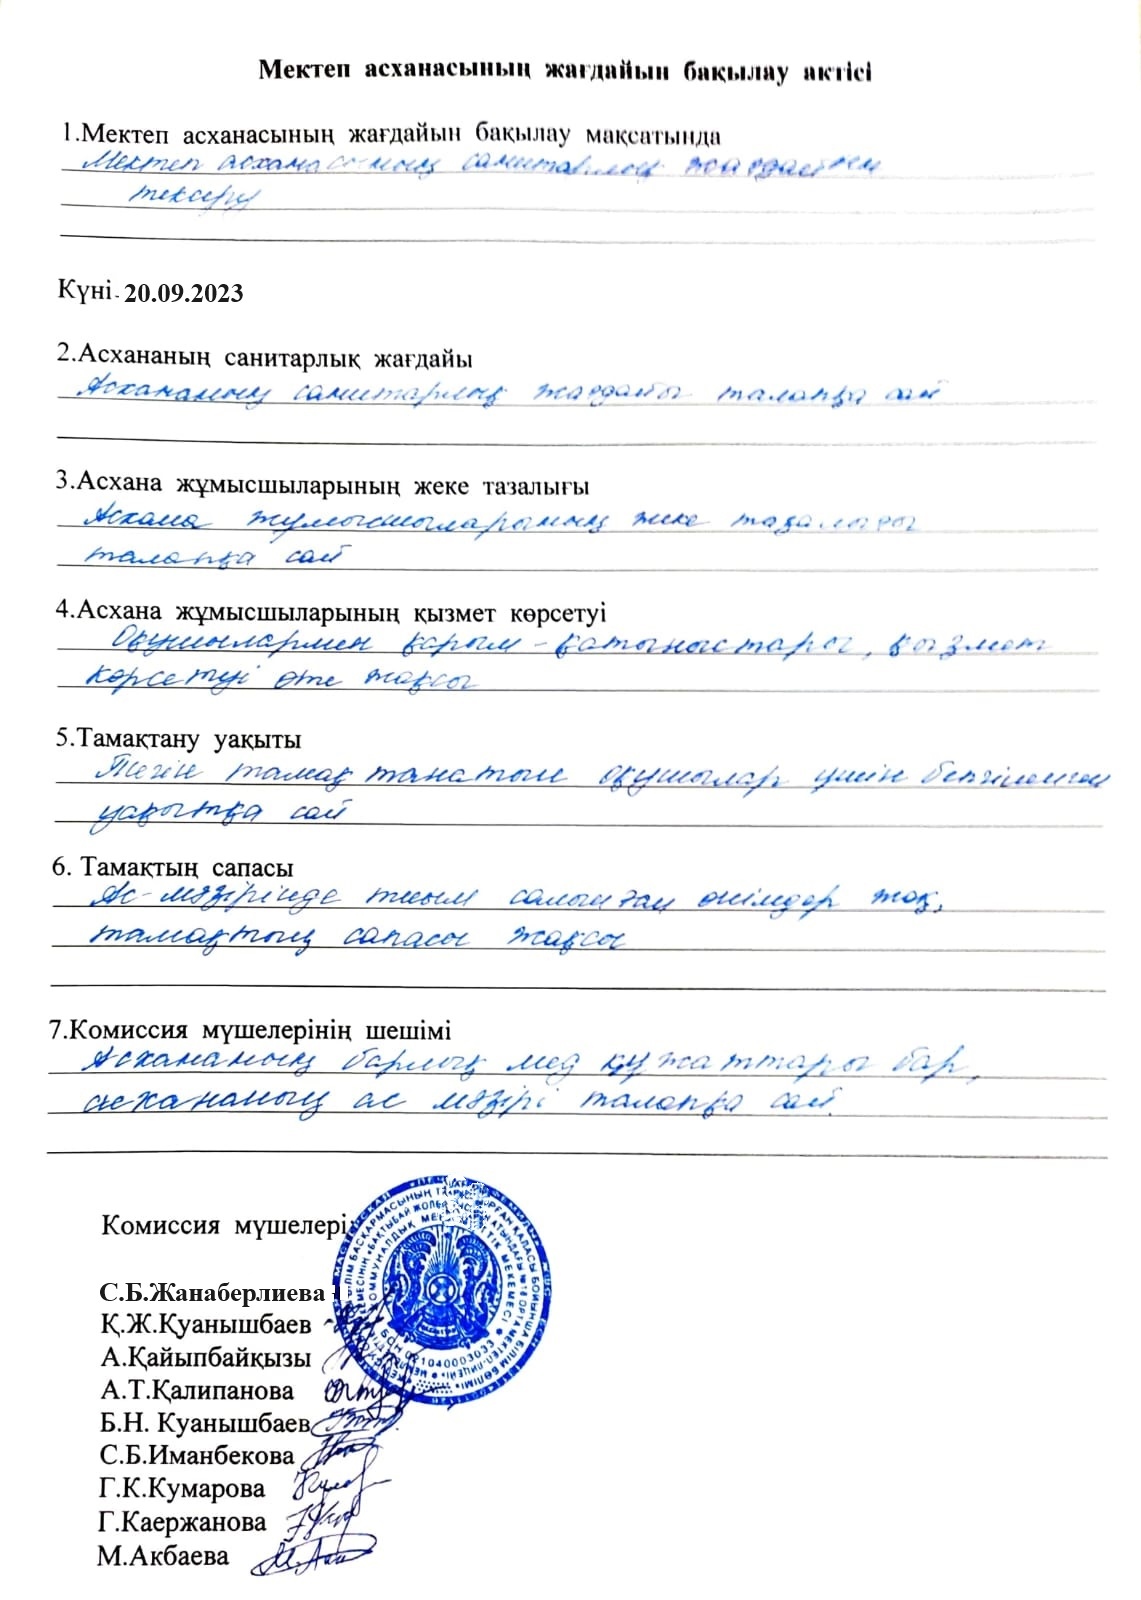 Мектеп асханасының жағдайын бақылау актісі
1.Мектеп асханасының жағдайын бақылау мақсатында
Мектеп асханасының санитарлық жағдайын
тексеру
Күні - 20.09.2023
2.Асхананың санитарлық жағдайы
Асхананың санитарлық жағдайы талапқа сай
3.Асхана жұмысшыларының жеке тазалығы
Асхана жұмысшыларының жеке тазалығы
талапқа сай
4.Асхана жұмысшыларының қызмет көрсетуі
Оқушылармен қарым-қатынастары, қызмет
көрсетуі өте жақсы
5.Тамақтану уақыты
Тегін тамақтанатын оқушылар үшін белгіленген
уақытқа сай
6. Тамақтың сапасы
Ас-мәзірінде тыйым салынған өнімдер жоқ,
тамақтың сапасы жақсы
7.Комиссия мүшелерінің шешімі
Асхананың барлық мед құжаттары бар,
асхананың ас мәзірі талапқа сай.
Комиссия мүшелері
С.Б.Жанаберлиева
Қ.Ж.Қуанышбаев
А.Қайыпбайқызы
А.Т.Қалипанова
Б.Н. Куанышбаев
С.Б.Иманбекова
Г.К.Кумарова
Г.Каержанова
М.Акбаева